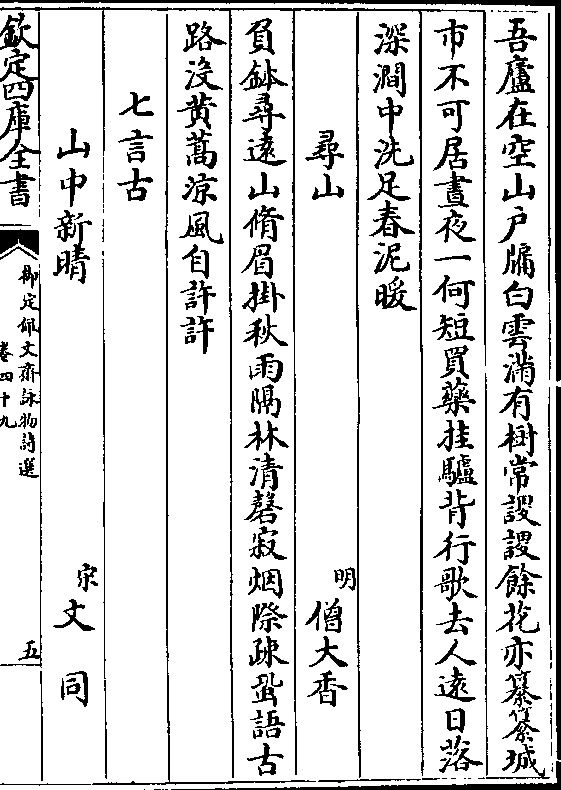 吾廬在空山户牖白雲滿有樹常謖謖餘花亦纂纂城
市不可居晝夜一何短買藥挂驢背行歌去人遠日落
深澗中洗足春泥暖
尋山
明 僧大香
負鉢尋遠山脩眉掛秋雨隔林清磬寂烟際疎蛩語古
路没黄蒿涼風自許許
七言古
山中新晴
宋 文同
欽定四庫全書
御定佩文齋詠物詩選
卷四十九
五